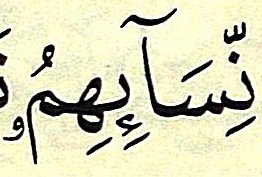 نِّسَآئِهِمُۥ